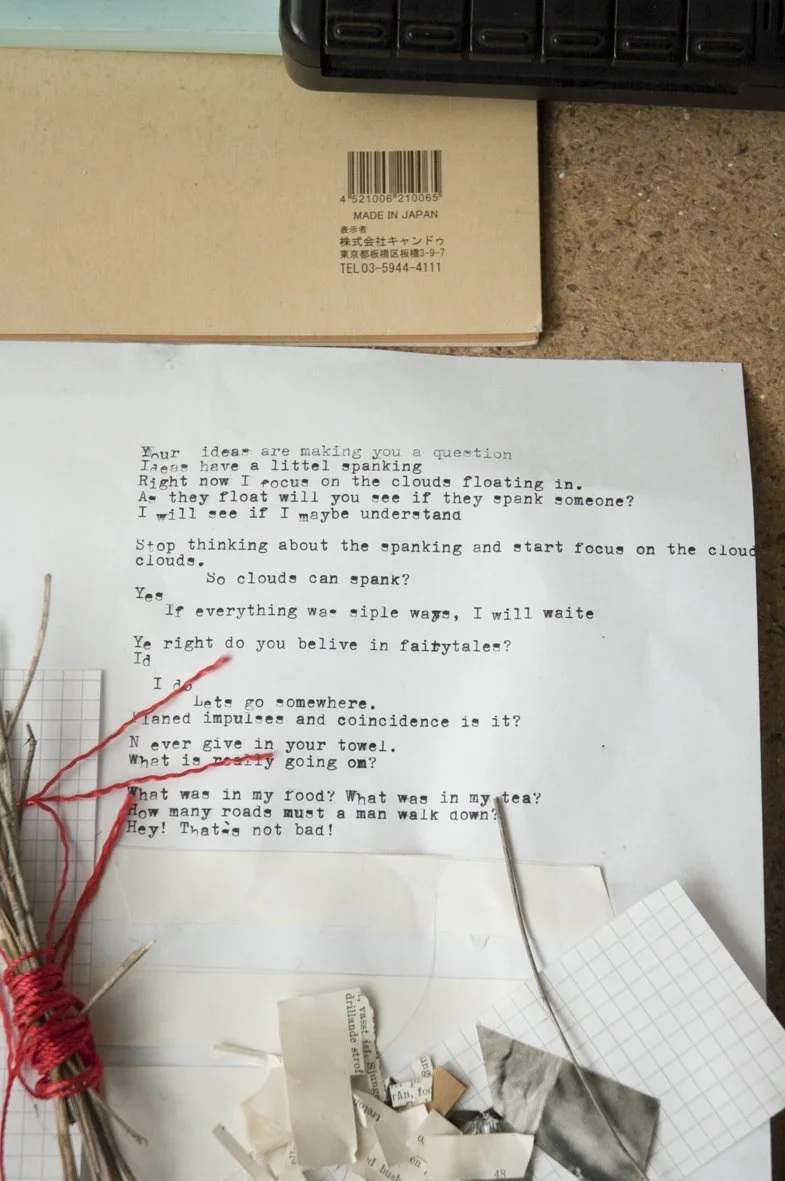 4 521006 210065
MADE IN JAPAN
表示者
株式会社キャンドゥ
東京都板橋区板橋3-9-7
TEL 03-5944-4111
Your ideas are making you a question
Ideas have a littel spanking
Right now I focus on the clouds floating in.
As they float will you see if they spank someone?
I will see if I maybe understand
Stop thinking about the spanking and start focus on the cloud
clouds.
So clouds can spank?
Yes
If everything was siple ways, I will waite
Ye right do you belive in fairytales?
Id
I do
Lets go somewhere.
Planed impulses and coincidence is it?
N ever give in your towel.
What is really going on?
What was in my food? What was in my tea?
How many roads must a man walk down?
Hey! That's not bad!
, vasst isf. Sjung
drillande strof
ung
rAn, foo
48